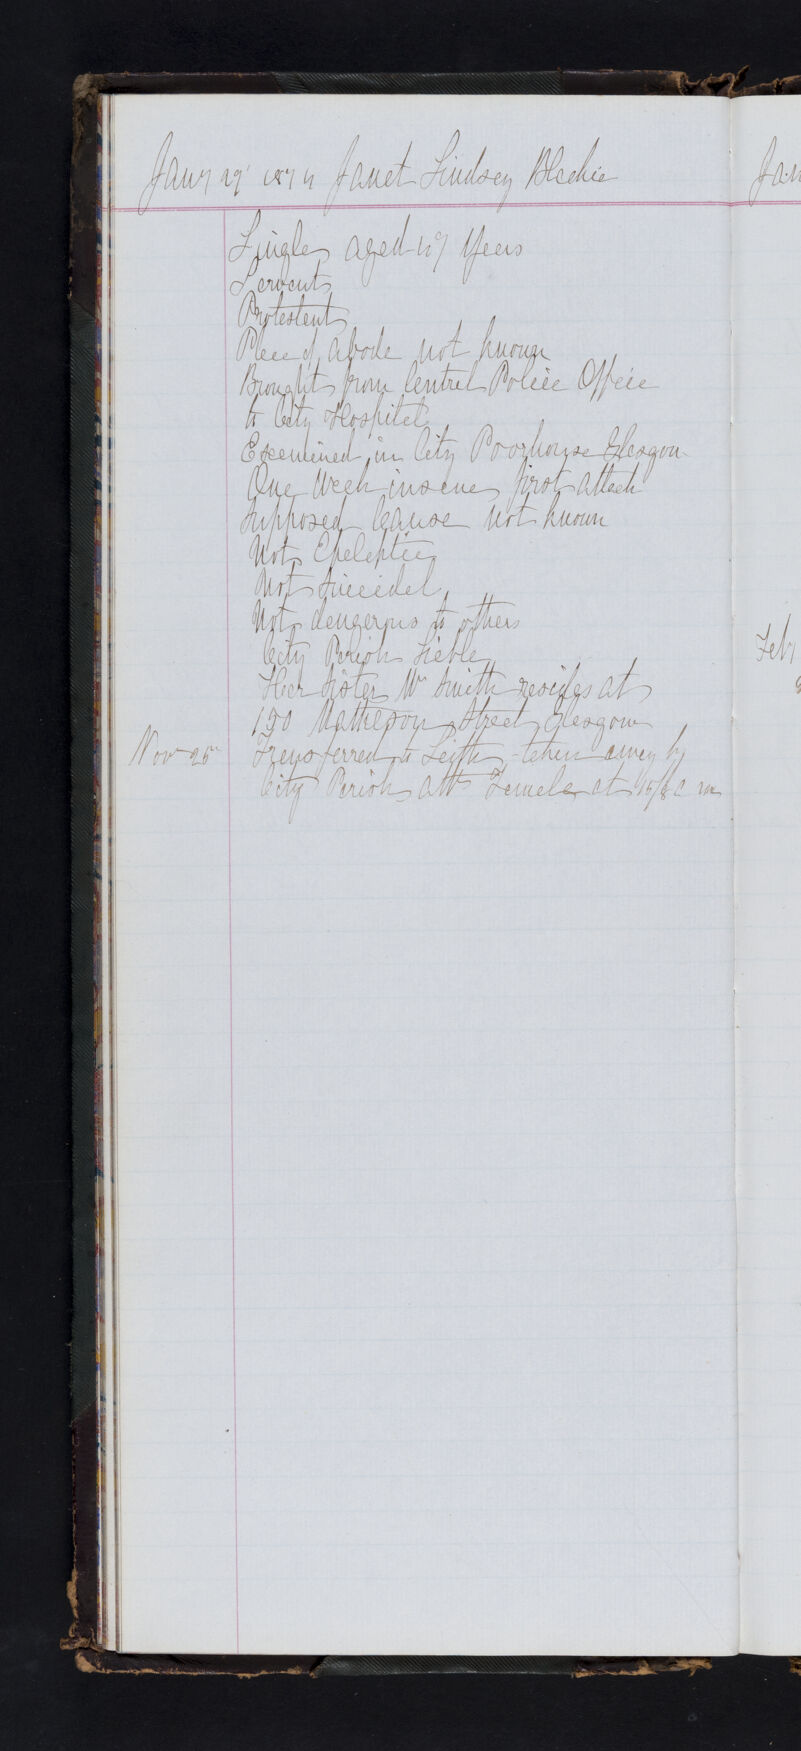 Jany 29 1874 Janet Lindsay Blackie
Single aged 47 Years
Servant
Protestant
Place of abode not known
Brought from Central Police Office
to City Hospital
Examined in City Poorhouse Glasgow
One Week insane first attack
Supposed Cause not known
Not Epileptic
Not Suicidal
Not dangerous to others
City Parish Liable
Her Sister Mrs Smith resides at
150 Matheson Street Glasgow
Nov 25 Transferred to Leith - taken away by
City Parish att Female at a m
Jan
Feby